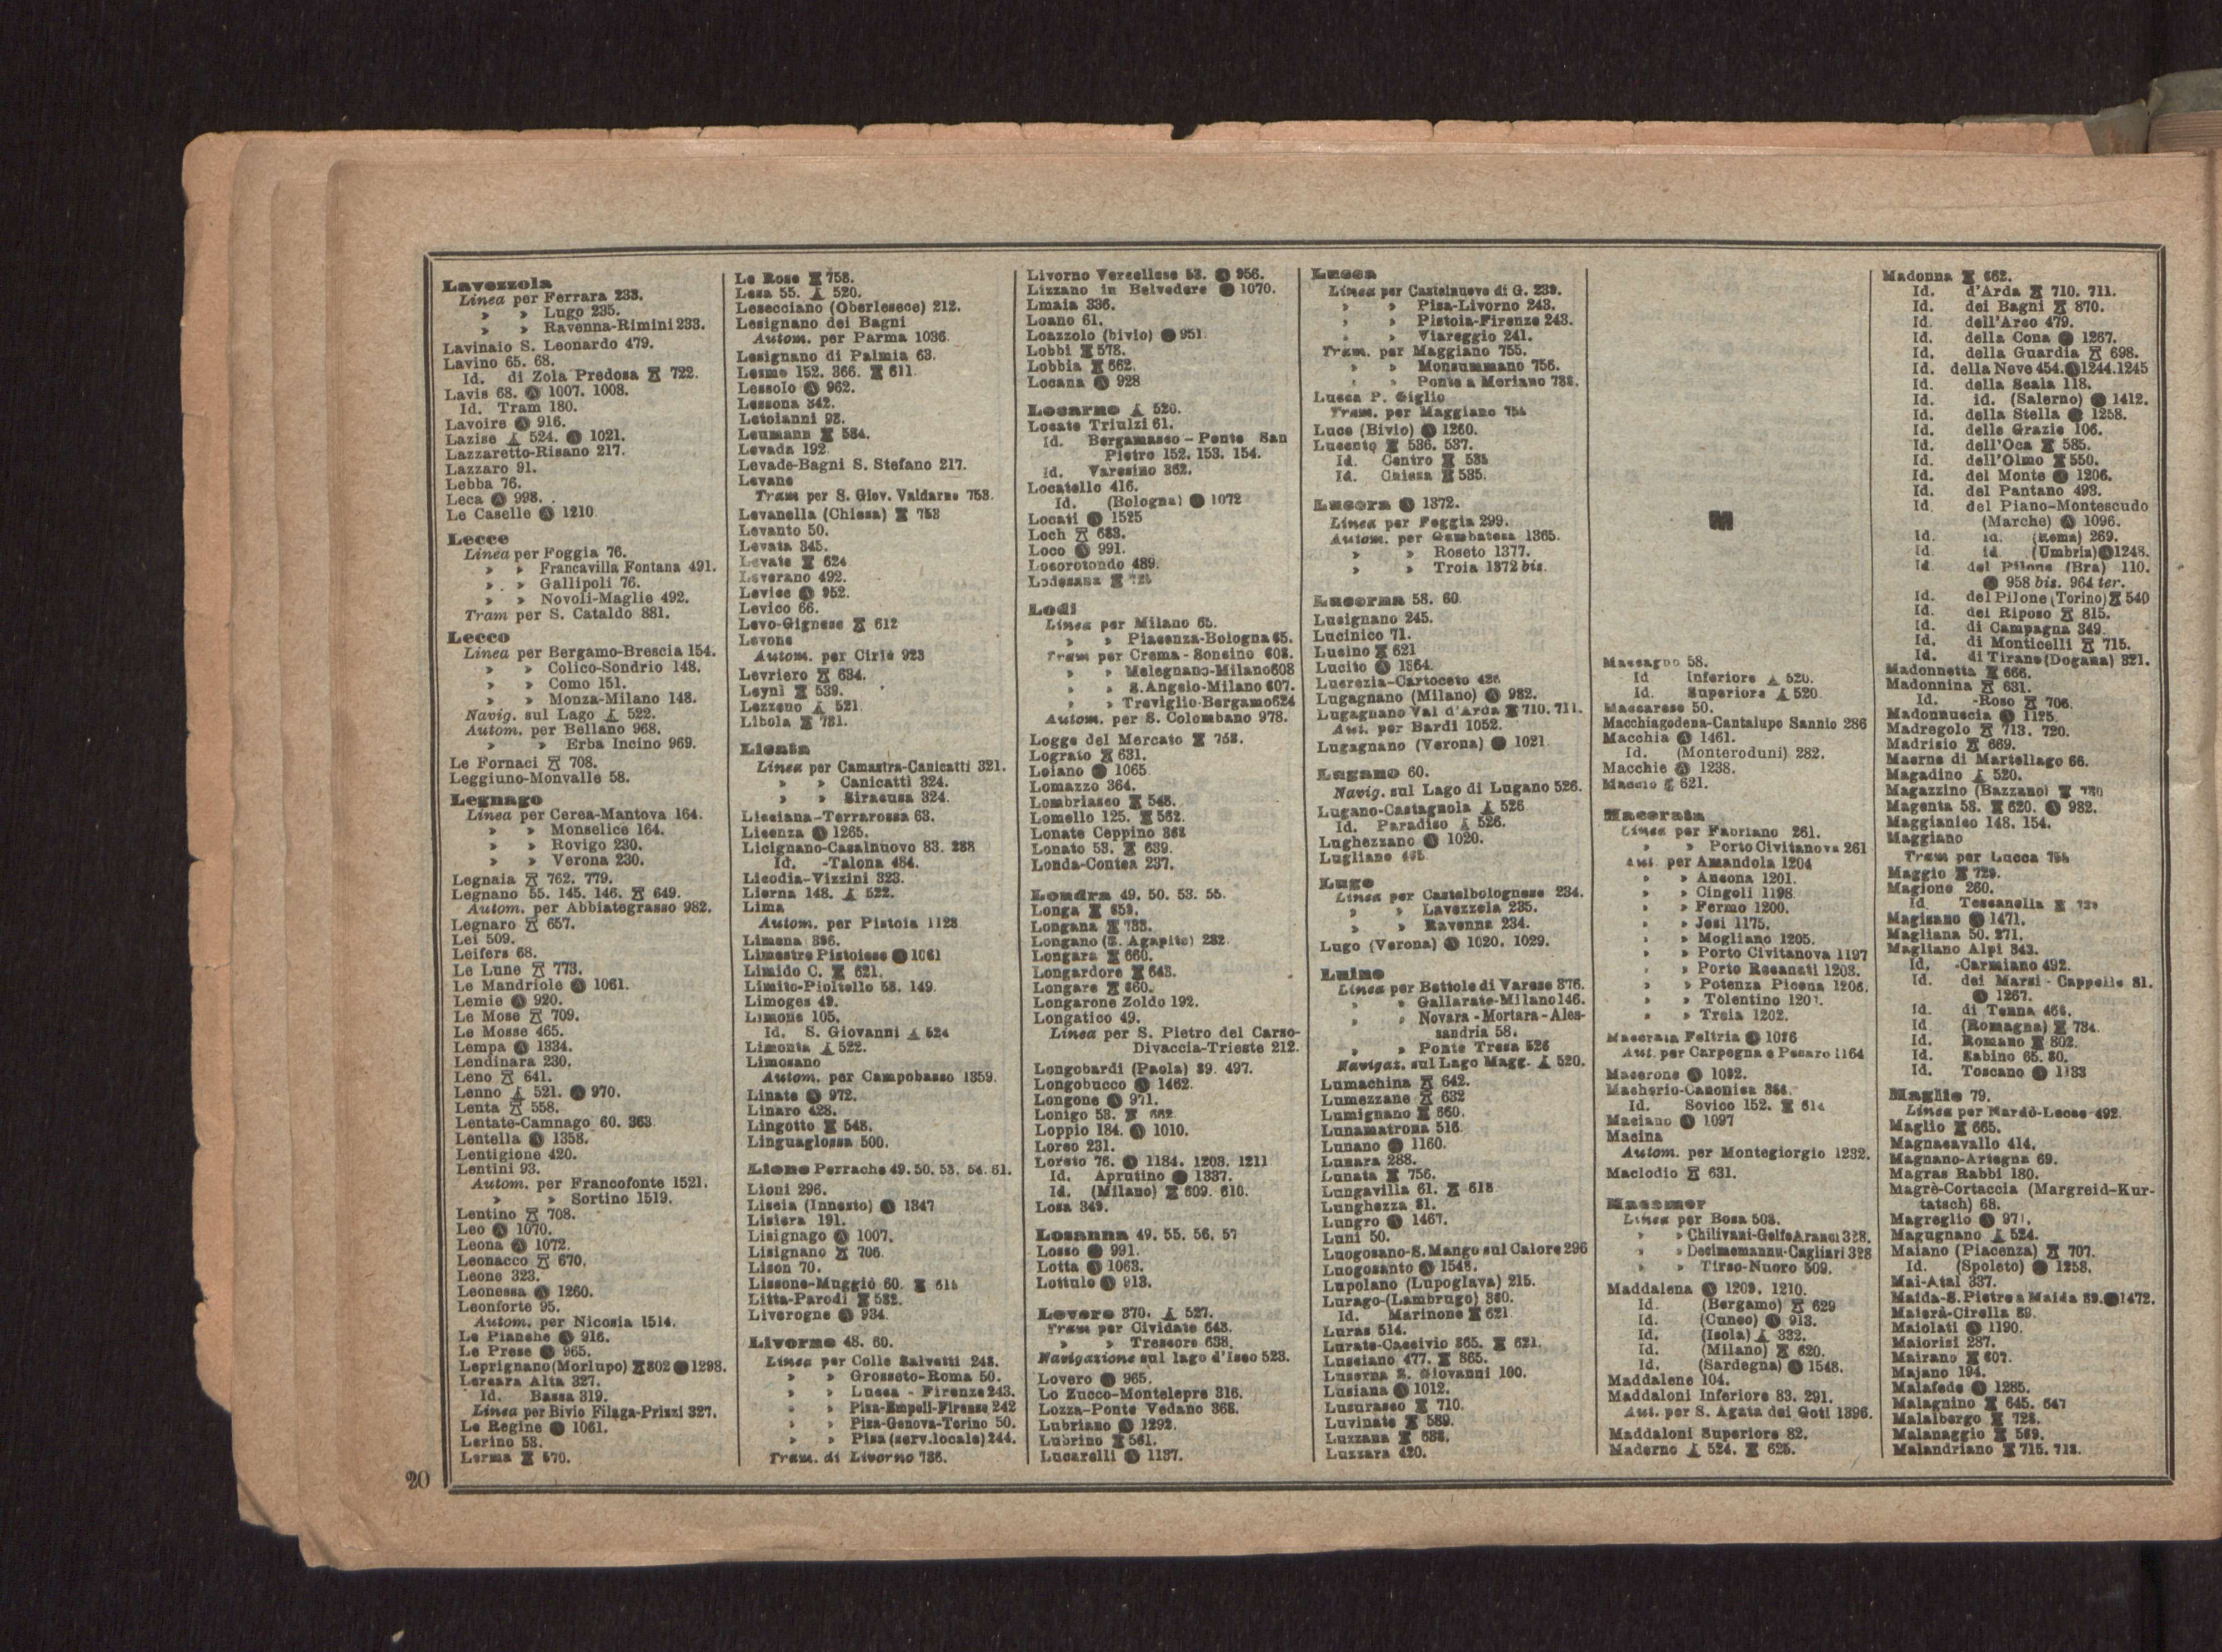 Lavezzola
Linea per Ferrara 233.
» » Lugo 235.
» » Ravenna-Rimini 233.
Lavinaio S. Leonardo 479.
Lavino 65. 68.
Id. di Zola Predosa 722.
Lavis 68. Ⓐ 1007. 1008.
Id. Tram 180.
Lavoire Ⓐ 916.
Lazise 524. Ⓐ 1021.
Lazzaretto-Risano 217.
Lazzaro 91.
Lebba 76.
Leca Ⓐ 998.
Le Caselle Ⓐ 1210
Lecce
Linea per Foggia 76.
» » Francavilla Fontana 491.
» » Gallipoli 76.
» » Novoli-Maglie 492.
Tram per S. Cataldo 881.
Lecco
Linea per Bergamo-Brescia 154.
» » Colico-Sondrio 148.
» » Como 151.
» » Monza-Milano 148.
Navig. sul Lago 522.
Autom. per Bellano 968.
» » Erba Incino 969.
Le Fornaci 708.
Leggiuno-Monvalle 58.
Legnago
Linea per Cerea-Mantova 164.
» » Monselice 164.
» » Rovigo 230.
» » Verona 230.
Legnaia 762. 779.
Legnano 55. 145. 146. 649.
Autom. per Abbiategrasso 982.
Legnaro 657.
Lei 509.
Leifers 68.
Le Lune 773.
Le Mandriole Ⓐ 1061.
Lemie Ⓐ 920.
Le Mose 709.
Le Mosse 465.
Lempa Ⓐ 1334.
Lendinara 230.
Leno 641.
Lenno 521. Ⓐ 970.
Lenta 558.
Lentate-Camnago 60. 363
Lentella Ⓐ 1358.
Lentigione 420.
Lentini 93.
Autom. per Francofonte 1521.
» » Sortino 1519.
Lentino 708.
Leo Ⓐ 1070.
Leona Ⓐ 1072.
Leonacco 670.
Leone 323.
Leonessa Ⓐ 1260.
Leonforte 95.
Autom. per Nicosia 1514.
Le Pianche Ⓐ 916.
Le Prese Ⓐ 965.
Leprignano (Morlupo) 802 Ⓐ 1298.
Lercara Alta 327.
Id. Bassa 319.
Linea per Bivio Filaga-Prizzi 327.
Le Regine Ⓐ 1061.
Lerino 53.
Lerma 570.
Le Rose 758.
Lesa 55. 520.
Lesecciano (Oberlesece) 212.
Lesignano dei Bagni
Autom. per Parma 1036.
Lesignano di Palmia 63.
Lesmo 152. 366. 611
Lessolo Ⓐ 962.
Lessona 342.
Letoianni 93.
Leumann 534.
Levada 192
Levade-Bagni S. Stefano 217.
Levane
Tram per S. Giov. Valdarno 753.
Levanella (Chiesa) 753
Levanto 50.
Levata 345.
Levate 624
Leverano 492.
Levice Ⓐ 952.
Levico 66.
Levo-Gignese 612
Levone
Autom. per Ciriè 923
Levriero 634.
Leynì 539.
Lezzeno 521
Libola 781.
Licata
Linea per Camastra-Canicattì 321.
» » Canicattì 324.
» » Siracusa 324.
Licciana-Terrarossa 63.
Licenza Ⓐ 1265.
Licignano-Casalnuovo 83. 288
Id. -Talona 484.
Licodia-Vizzini 323.
Lierna 148. 522.
Lima
Autom. per Pistoia 1123
Limena 396.
Limestre Pistoiese Ⓐ 1061
Limido C. 621.
Limito-Pioltello 53. 149.
Limoges 49.
Limone 105.
Id. S. Giovanni 524
Limonta 522.
Limosano
Autom. per Campobasso 1359.
Linate Ⓐ 972.
Linaro 428.
Lingotto 548.
Linguaglossa 500.
Lione Perrache 49. 50. 53. 54. 61.
Lioni 296.
Liscia (Innesto) Ⓐ 1347
Lisiera 191.
Lisignago Ⓐ 1007.
Lisignano 706.
Lison 70.
Lissone-Muggiò 60. 615
Litta-Parodi 532.
Liverogne Ⓐ 934
Livorno 48. 60.
Linea per Colle Salvetti 248.
» » Grosseto-Roma 50.
» » Lucca - Firenze 243.
» » Pisa-Empoli-Firenze 242
» » Pisa-Genova-Torino 50.
» » Pisa (serv. locale) 244.
Tram. di Livorno 786.
Livorno Vercellese 53. Ⓐ 956.
Lizzano in Belvedere Ⓐ 1070.
Lmaia 336.
Loano 61.
Loazzolo (bivio) Ⓐ 951
Lobbi 578.
Lobbia 662.
Locana Ⓐ 928
Locarno 520.
Locate Triulzi 61.
Id. Bergamasco - Ponte San
Pietro 152. 153. 154.
Id. Varesino 362.
Locatello 416.
Id. (Bologna) Ⓐ 1072
Locati Ⓐ 1525
Loch 683.
Loco Ⓐ 991.
Locorotondo 489.
Lodesana
Lodi
Linea per Milano 65.
» » Piacenza-Bologna 65.
Tram per Crema - Soncino 608.
» » Melegnano-Milano 608
» » S. Angelo-Milano 607.
» » Treviglio-Bergamo 624
Autom. per S. Colombano 978.
Logge del Mercato 758.
Lograto 631.
Loiano Ⓐ 1065
Lomazzo 364.
Lombriasco 548.
Lomello 125. 562.
Lonate Ceppino 362
Lonato 53. 639.
Londa-Contea 237.
Londra 49. 50. 53. 55.
Longa 659.
Longana 788.
Longano (S. Agapito) 282
Longara 660.
Longardore 648.
Longare 660.
Longarone Zoldo 192.
Longatico 49.
Linea per S. Pietro del Carso-
Divaccia-Trieste 212.
Longobardi (Paola) 89. 497.
Longobucco Ⓐ 1462.
Longone Ⓐ 971.
Lonigo 53. 662
Loppio 184. Ⓐ 1010.
Loreo 231.
Loreto 76. Ⓐ 1184. 1203. 1211
Id. Aprutino Ⓐ 1337.
Id. (Milano) 609. 610.
Losa 349.
Losanna 49. 55. 56. 57
Losso Ⓐ 991.
Lotta Ⓐ 1063.
Lottulo Ⓐ 913.
Lovere 370. 527.
Tram per Cividate 643.
» » Trescore 638.
Navigazione sul lago d'Iseo 523.
Lovero Ⓐ 965.
Lo Zucco-Montelepre 316.
Lozza-Ponte Vedano 368.
Lubriano Ⓐ 1292.
Lubrino 561.
Lucarelli Ⓐ 1137.
Lucca
Linea per Castelnuovo di G. 239.
» » Pisa-Livorno 243.
» » Pistoia-Firenze 243.
» » Viareggio 241.
Tram. per Maggiano 755.
» » Monsummano 756.
» » Ponte a Moriano 788.
Lucca P. Giglio
Tram. per Maggiano 754
Luce (Bivio) Ⓐ 1260.
Lucento 536. 537.
Id. Centro 535
Id. Chiesa 535.
Lucera Ⓐ 1372.
Linea per Foggia 299.
Autom. per Gambatesa 1365.
» » Roseto 1377.
» » Troia 1372 bis.
Lucerna 58. 60
Lucignano 245.
Lucinico 71.
Lucino 621
Lucito Ⓐ 1364.
Lucrezia-Cartoceto 426
Lugagnano (Milano) Ⓐ 982.
Lugagnano Val d'Arda 710. 711.
Aut. per Bardi 1052.
Lugagnano (Verona) Ⓐ 1021
Lugano 60.
Navig. sul Lago di Lugano 526.
Lugano-Castagnola 526
Id. Paradiso 526.
Lughezzano Ⓐ 1020.
Lugliano
Lugo
Linea per Castelbolognese 234.
» » Lavezzola 235.
» » Ravenna 234.
Lugo (Verona) Ⓐ 1020. 1029.
Luino
Linea per Bettole di Varese 376.
» » Gallarate-Milano 146.
» » Novara - Mortara - Ales-
sandria 58.
» » Ponte Tresa 526
Navigaz. sul Lago Magg. 520.
Lumachina 642.
Lumezzane 632
Lumignano 660.
Lunamatrona 516
Lunano Ⓐ 1160.
Lunara 288.
Lunata 756.
Lungavilla 61. 618
Lunghezza 81.
Lungro Ⓐ 1467.
Luni 50.
Luogosano-S. Mango sul Calore 296
Luogosanto Ⓐ 1548.
Lupolano (Lupoglava) 215.
Lurago-(Lambrugo) 360.
Id. Marinone 621
Luras 514.
Lurate-Caccivio 365. 621.
Lusciano 477. 865.
Luserna S. Giovanni 100.
Lusiana Ⓐ 1012.
Lusurasco 710.
Luvinate 589.
Luzzana 638.
Luzzara 420.
M
Maccagno 58.
Id Inferiore 520.
Id. Superiore 520
Maccarese 50.
Macchiagodena-Cantalupo Sannio 286
Macchia Ⓐ 1461.
Id. (Monteroduni) 282.
Macchie Ⓐ 1238.
Maccio 621.
Macerata
Linea per Fabriano 261.
» » Porto Civitanova 261
Aut. per Amandola 1204
» » Ancona 1201.
» » Cingoli 1198
» » Fermo 1200.
» » Jesi 1175.
» » Mogliano 1205.
» » Porto Civitanova 1197
» » Porto Recanati 1203.
» » Potenza Picena 1206.
» » Tolentino 1201.
» » Treia 1202.
Macerata Feltria Ⓐ 1096
Aut. per Carpegna e Pesaro 1164
Macerone Ⓐ 1092.
Macherio-Canonica 364.
Id. Sovico 152. 614
Maciano Ⓐ 1097
Macina
Autom. per Montegiorgio 1232.
Maclodio 631.
Macomer
Linea per Bosa 508.
» » Chilivani-Golfo Aranci 328.
» » Decimomannu-Cagliari 328
» » Tirso-Nuoro 509.
Maddalena Ⓐ 1209. 1210.
Id. (Bergamo) 629
Id. (Cuneo) Ⓐ 913.
Id. (Isola) 332.
Id. (Milano) 620.
Id. (Sardegna) Ⓐ 1548.
Maddalene 104.
Maddaloni Inferiore 83. 291.
Aut. per S. Agata dei Goti 1396.
Maddaloni Superiore 82.
Maderno 524. 625.
Madonna 662.
Id. d'Arda 710. 711.
Id. dei Bagni 870.
Id. dell'Arco 479.
Id. della Cona Ⓐ 1267.
Id. della Guardia 698.
Id. della Neve 454. Ⓐ 1244.1245
Id. della Scala 118.
Id. id. (Salerno) Ⓐ 1412.
Id. della Stella Ⓐ 1258.
Id. delle Grazie 106.
Id. dell'Oca 585.
Id. dell'Olmo 550.
Id. del Monte Ⓐ 1206.
Id. del Pantano 493.
Id. del Piano-Montescudo
(Marche) Ⓐ 1096.
Id. id. (Roma) 269.
Id. id (Umbria) Ⓐ 1248.
Id. del Pilone (Bra) 110.
Ⓐ 958 bis. 964 ter.
Id. del Pilone (Torino) 540
Id. del Riposo 815.
Id. di Campagna 349
Id. di Monticelli 715.
Id. di Tirano (Dogana) 321.
Madonnetta 666.
Madonnina 631.
Id. -Roso 706
Madonnuccia Ⓐ 1125.
Madregolo 713. 720.
Madrisio 669.
Maerne di Martellago 66.
Magadino 520.
Magazzino (Bazzano) 780
Magenta 53. 620. Ⓐ 982.
Maggianico 148. 154.
Maggiano
Tram per Lucca 754
Maggio 729.
Magione 260.
Id. Toscanella
Magisano Ⓐ 1471.
Magliana 50. 271.
Magliano Alpi 343.
Id. -Carmiano 492.
Id. dei Marsi - Cappelle 81.
Ⓐ 1267.
Id. di Tenna 466.
Id (Romagna) 734.
Id. Romano 802.
Id. Sabino 65. 80.
Id. Toscano Ⓐ 1133
Maglie 79.
Linea per Nardò-Lecce 492.
Maglio 665.
Magnacavallo 414.
Magnano-Artegna 69.
Magras Rabbi 180.
Magrè-Cortaccia (Margreid-Kur-
tatsch) 68.
Magreglio Ⓐ 971.
Magugnano 524.
Maiano (Piacenza) 707.
Id. (Spoleto) Ⓐ 1258.
Mai-Atal 337.
Maida-S. Pietro a Maida 89. Ⓐ 1472.
Maierà-Cirella 89.
Maiolati Ⓐ 1190.
Maiorisi 287.
Mairano 607.
Majano 194.
Malafede Ⓐ 1285.
Malagnino 645. 647
Malalbergo 728.
Malanaggio 569.
Malandriano 715. 718.
20